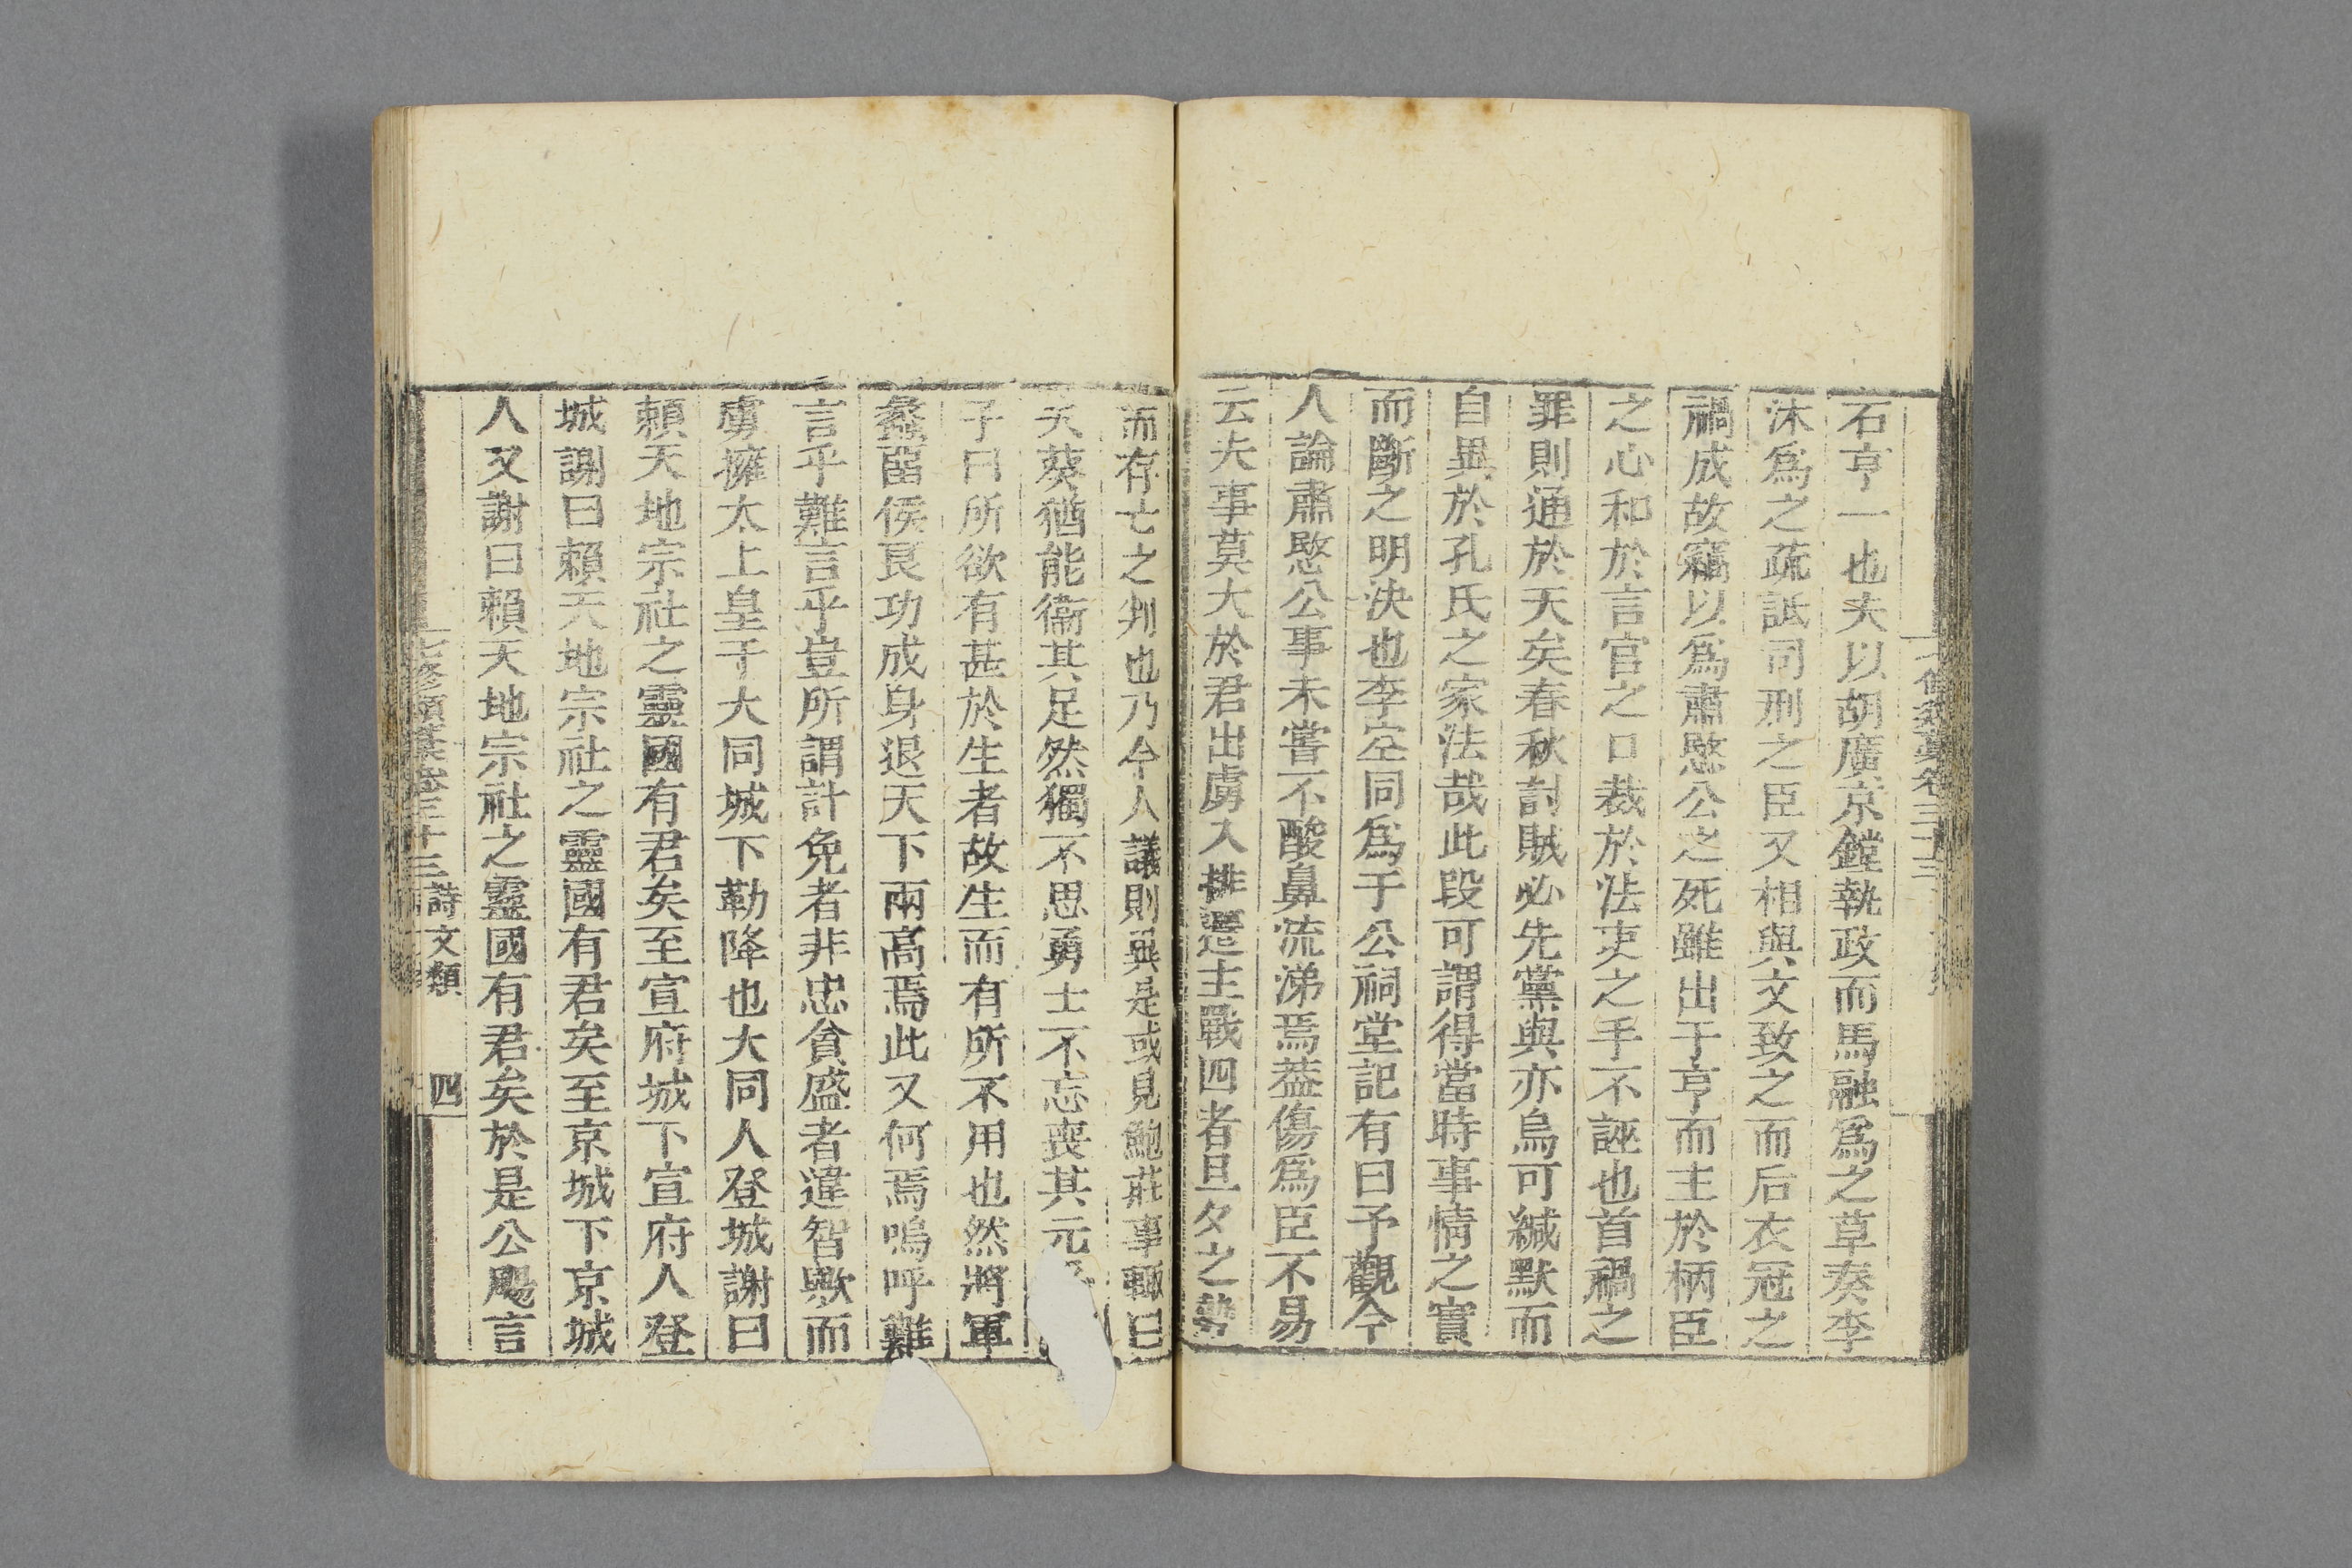 石亨一也夫以胡廣京鏜執政而馬融爲之草奏李
沐爲之疏詆司刑之臣又相與文致之而后衣冠之
禍成故竊以爲肅愍公之死雖出于亨而主於柄臣
之心和於言官之口裁於法吏之手不誣也首禍之
罪則通於天矣春秋討賊必先黨與亦烏可緘默而
自異於孔氏之家法哉此段可謂得當時事情之實
而斷之明决也李空同爲于公祠堂記有曰予觀今
人論肅愍公事未嘗不酸鼻流涕焉葢傷爲臣不易
云夫事莫大於君出虜入排遷主戰四者旦夕之勢
而存亡之判也乃今人議則異是或見鮑莊事輒曰
夫葵猶能衞其足然獨不思勇士不忘喪其元
子曰所欲有甚於生者故生而有所不用也然將軍
蠡畱侯良功成身退天下兩高焉此又何焉嗚呼難
言乎難言乎豈所謂計免者非忠貪盛者違智歟而
虜擁太上皇于大同城下勒降也大同人登城謝曰
賴天地宗社之靈國有君矣至宣府城下宣府人登
城謝曰賴天地宗社之靈國有君矣至京城下京城
人又謝曰賴天地宗社之靈國有君矣於是公颺言
七修類藁卷二十三 詩文類 四